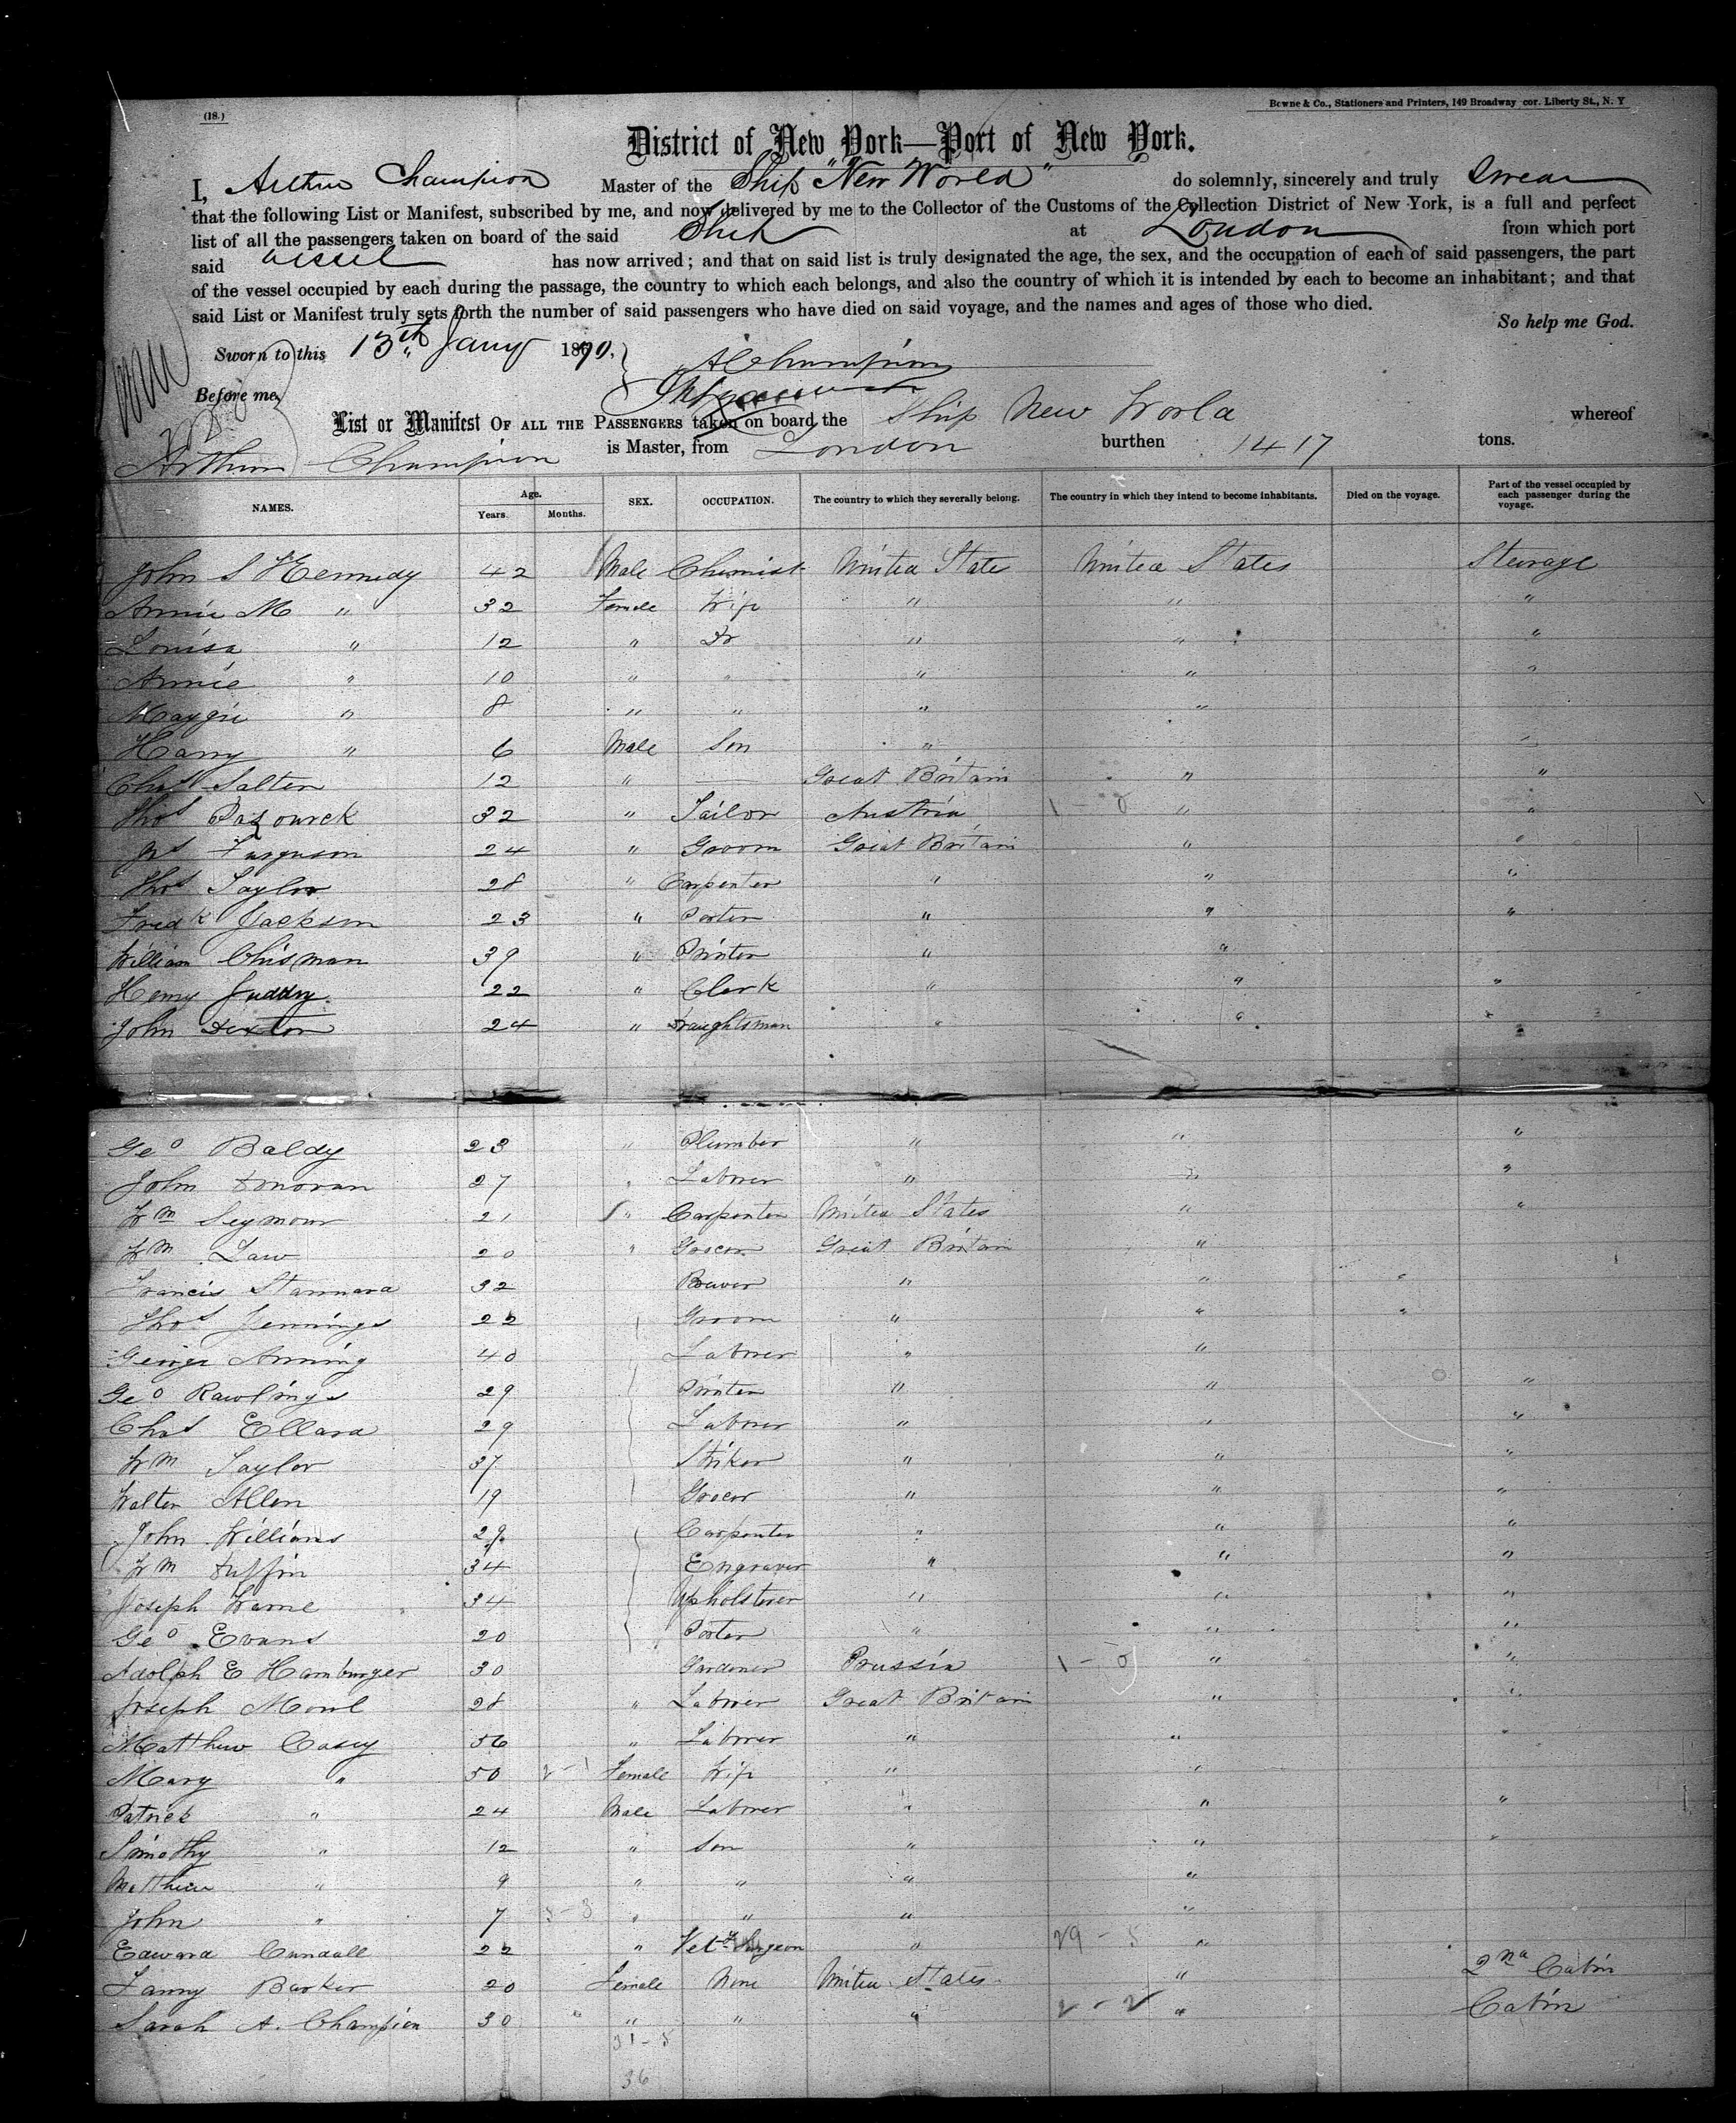 (18.)
Bowne & Co., Stationers and Printers, 149 Broadway cor. Liberty St., N. Y
District of New York—Port of New York.
I, Arthur Champion Master of the Ship "New World" do solemnly, sincerely and truly Swear
that the following List or Manifest, subscribed by me, and now delivered by me to the Collector of the Customs of the Collection District of New York, is a full and perfect
list of all the passengers taken on board of the said Ship at London from which port
said vessel has now arrived; and that on said list is truly designated the age, the sex, and the occupation of each of said passengers, the part
of the vessel occupied by each during the passage, the country to which each belongs, and also the country of which it is intended by each to become an inhabitant; and that
said List or Manifest truly sets forth the number of said passengers who have died on said voyage, and the names and ages of those who died.
So help me God.
Sworn to this 13th Jany 1870,
A Champion
Before me,
List or Manifest OF ALL THE PASSENGERS taken on board the Ship New World whereof
Arthur Champion is Master, from London burthen 1417 tons.
NAMES. Age. Years. Months. SEX. OCCUPATION. The country to which they severally belong. The country in which they intend to become inhabitants. Died on the voyage. Part of the vessel occupied by each passenger during the voyage.
John S Kennedy 42 Male Chemist United State United States Steerage
Annie M " 32 Female Wife " " "
Louisa " 12 " Do " " "
Annie " 10 " " " " "
Maggie " 8 " " " "
Harry " 6 Male Son " "
Chas Salter 12 " — Great Britain " "
Thos Pazourek 32 " Tailor Austria 1 - 0 " "
Jas Furguson 24 " Groom Great Britain " "
Thos Taylor 28 " Carpenter " " "
Fredk Jackson 23 " Porter " " "
William Chisman 39 " Printer " "
Henry Juddry 22 " Clerk " " "
John Dexton 24 " Draughtsman " " "
Geo Baldy 23 " Plumber " " "
John Donovan 27 " Laborer " " "
Wm Seymour 21 " Carpenter United States " "
Wm Law 20 " Grocer Great Britain "
Francis Stannard 32 Brewer " " "
Thos Jennings 22 Groom " " "
George Anning 40 Laborer " "
Geo Rawlings 29 Printer " " "
Chas Ellard 29 Laborer " " "
Wm Taylor 37 Striker " " "
Walter Allen 19 Grocer " " "
John Williams 29 Carpenter " " "
Wm Duffin 34 Engraver " " "
Joseph Warne 34 Upholsterer " " "
Geo Evans 20 Porter " " "
Adolph E Hamburger 30 Gardener Prussia 1 - 0 " "
Joseph Mowl 28 " Laborer Great Britain " "
Matthew Casey 56 " Laborer " " "
Mary " 50 2-1 Female Wife " "
Patrick " 24 Male Laborer " " "
Timothy " 12 " Son " " "
Matthew " 9 " " " "
John " 7 5-3 " " " "
Edward Cundall 22 " Vety Surgeon " 29 - 5 "
Fanny Barker 20 Female None United States " 2nd Cabin
Sarah A. Champion 30 " " " " 2 - 2 " Cabin
31-5
36